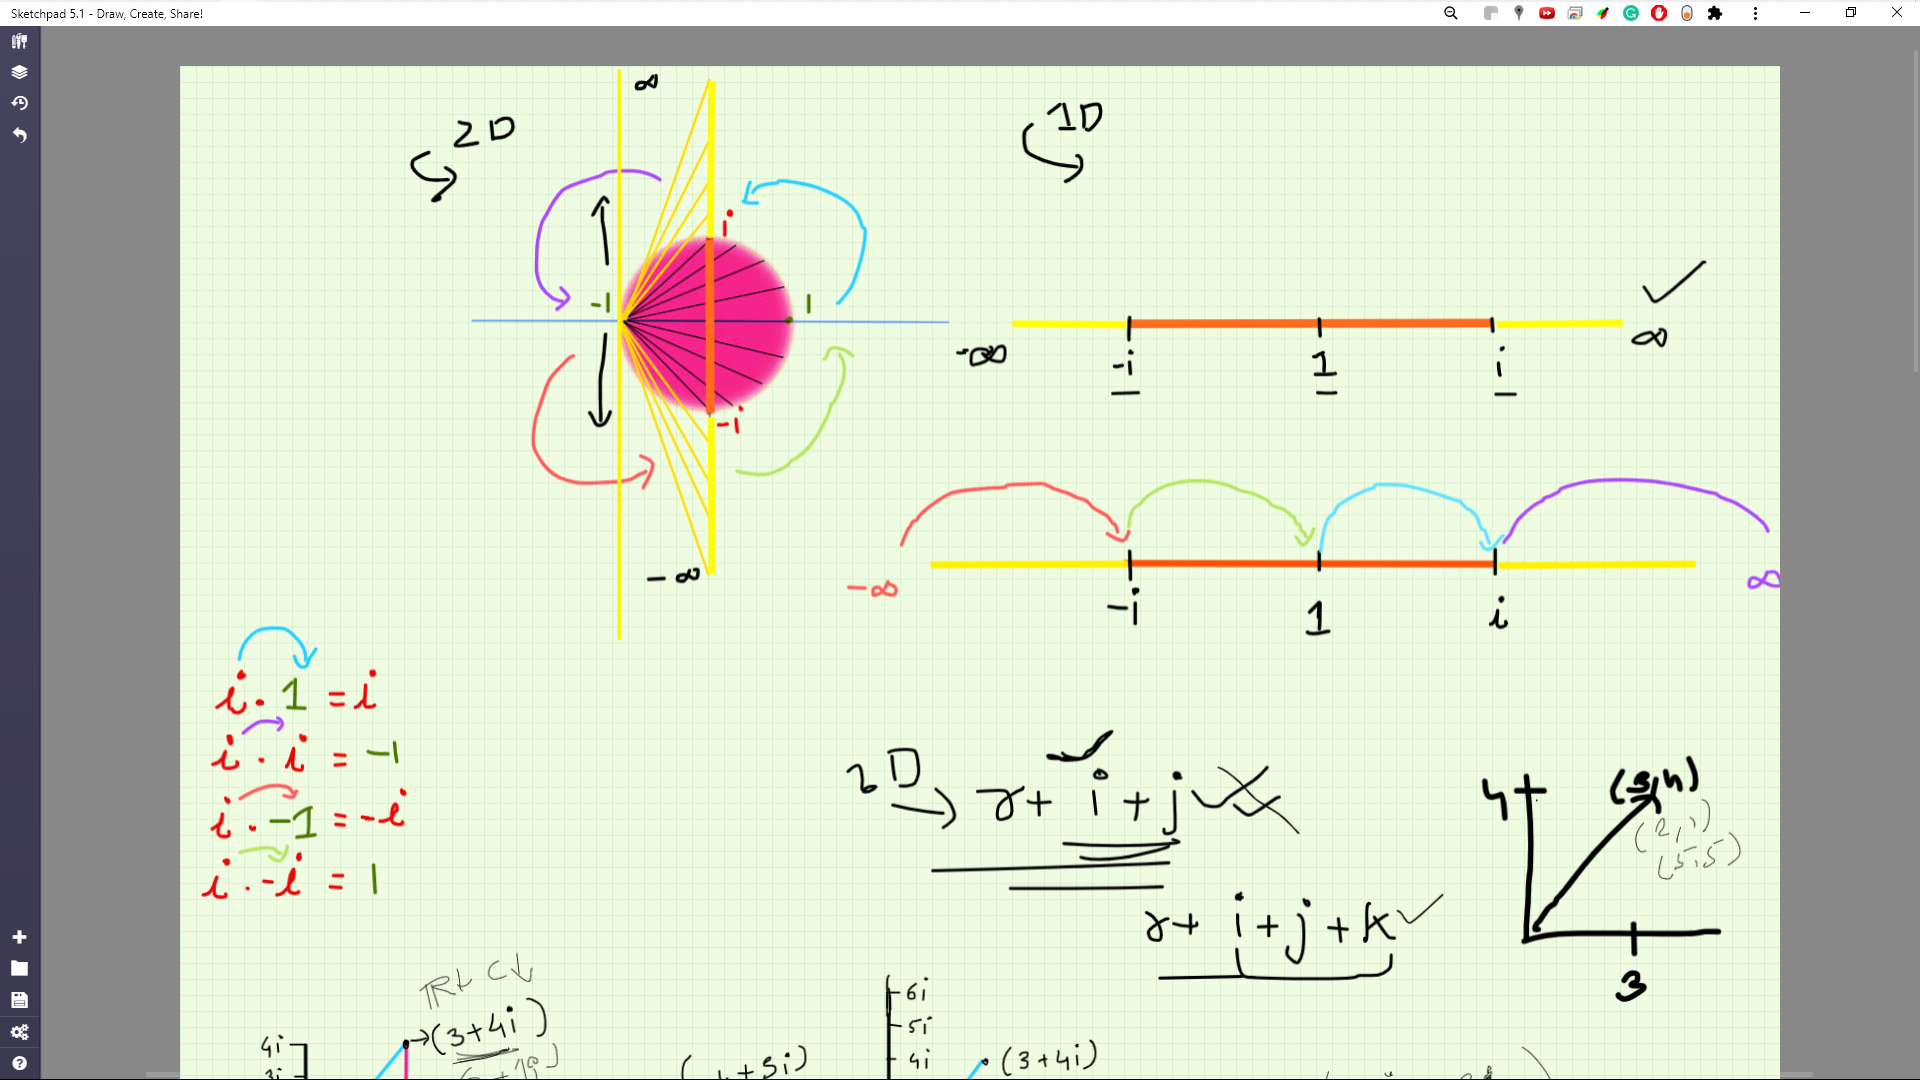 Sketchpad 5.1 - Draw, Create, Share!
∞
2D
1D
i
-1
1
-i
-∞
-∞
-i
1
i
∞
-∞
-i
1
i
∞
i · 1 = i
i · i = -1
i · -1 = -i
i · -i = 1
3D
r + i + j
r + i + j + k
4
(3,4)
(5,5)
3
(3+4i)
4i
3i
6i
5i
4i
(3+4i)